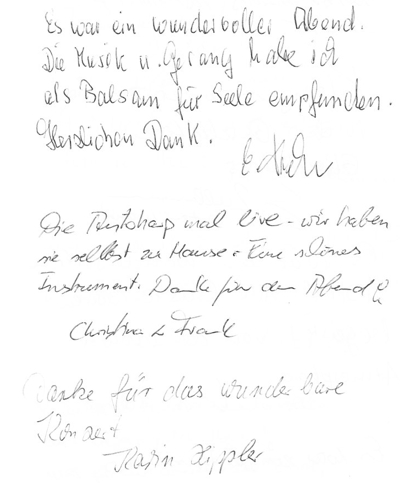 Es war ein wundervoller Abend.
Die Musik u. Gesang habe ich
als Balsam für Seele empfunden.
Herzlichen Dank.
Die Autoharp mal live - wir haben
sie selbst zu Hause. Eine schönes
Instrument. Danke für den Abend
Christina & Frank
Danke für das wunderbare
Konzert
Karin Zippler